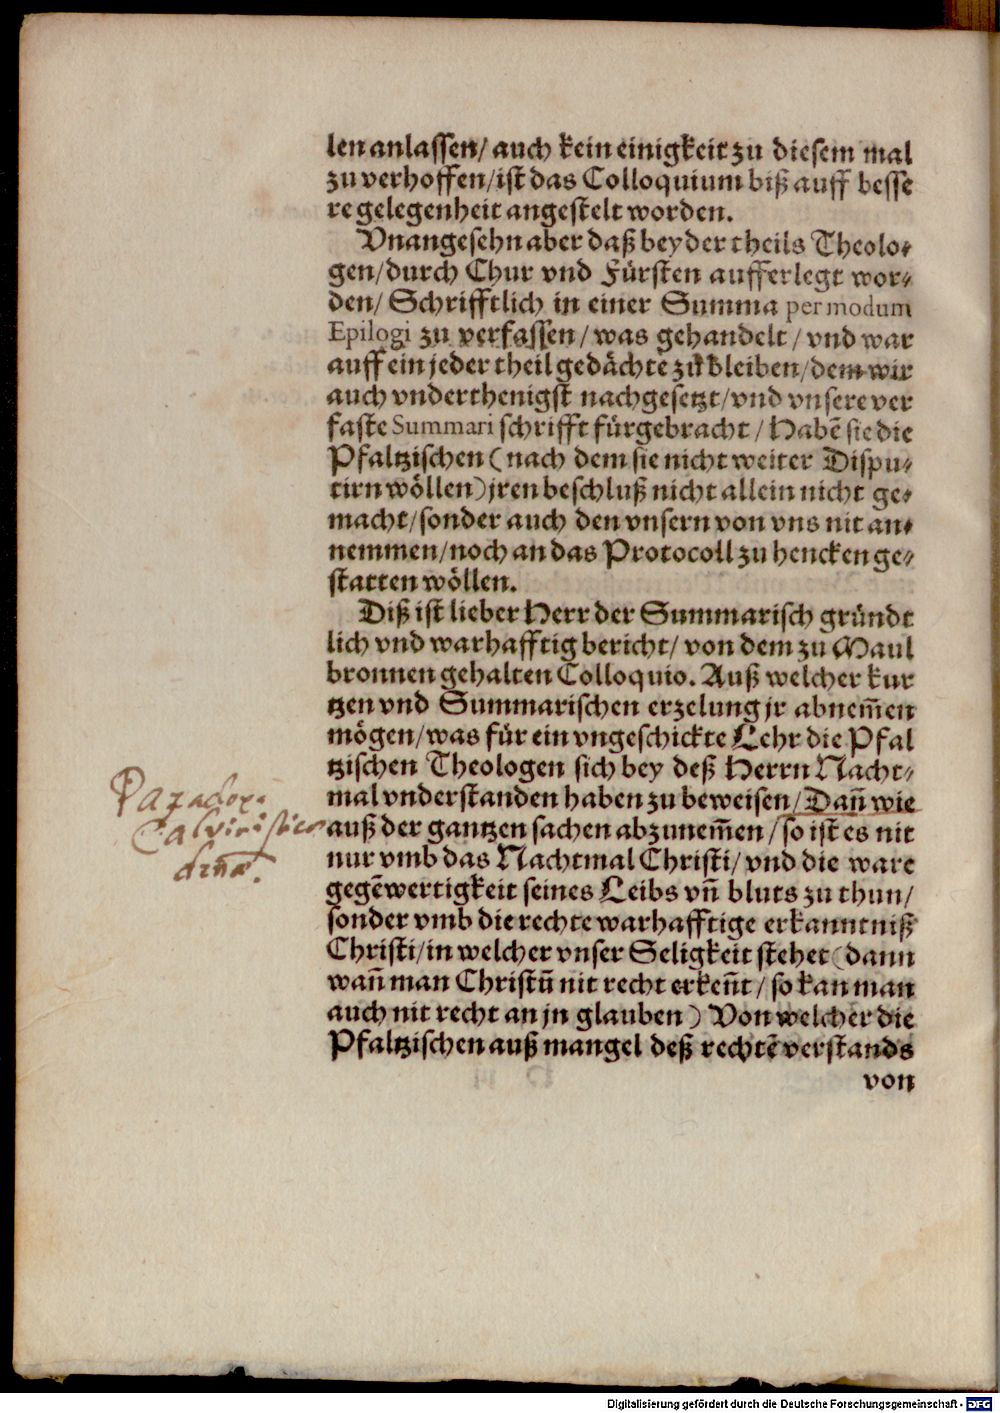 len anlassen/ auch kein einigkeit zu diesem mal
zu verhoffen/ ist das Colloquium biß auff besse
re gelegenheit angestelt worden.
Vnangesehn aber daß beyder theils Theolo-
gen/ durch Chur vnd Fürsten aufferlegt wor-
den/ Schrifftlich in einer Summa per modum
Epilogi zu verfassen/ was gehandelt/ vnd war
auff ein jeder theil gedächte zů bleiben/ dem wir
auch vnderthenigst nachgesetzt/ vnd vnsere ver
faste Summari schrifft fürgebracht/ Habẽ sie die
Pfaltzischen (nach dem sie nicht weiter Dispu-
tirn wöllen) jren beschluß nicht allein nicht ge-
macht/ sonder auch den vnsern von vns nit an-
nemmen/ noch an das Protocoll zu hencken ge-
statten wöllen.
Diß ist lieber Herr der Summarisch gründt
lich vnd warhafftig bericht/ von dem zu Maul
bronnen gehalten Colloquio. Auß welcher kur
tzen vnd Summarischen erzelung jr abnem̃en
mögen/ was für ein vngeschickte Lehr die Pfal
tzischen Theologen sich bey deß Herrn Nacht-
mal vnderstanden haben zu beweisen/ Dañ wie
auß der gantzen sachen abzunem̃en/ so ist es nit
nur vmb das Nachtmal Christi/ vnd die ware
gegẽwertigkeit seines Leibs vñ bluts zu thun/
sonder vmb die rechte warhafftige erkanntniß
Christi/ in welcher vnser Seligkeit stehet (dann
wañ man Christũ nit recht erkeñt/ so kan man
auch nit recht an jn glauben) Von welcher die
Pfaltzischen auß mangel deß rechtẽ verstands
von
Paradox.
Calvinisticae
Digitalisierung gefördert durch die Deutsche Forschungsgemeinschaft - DFG